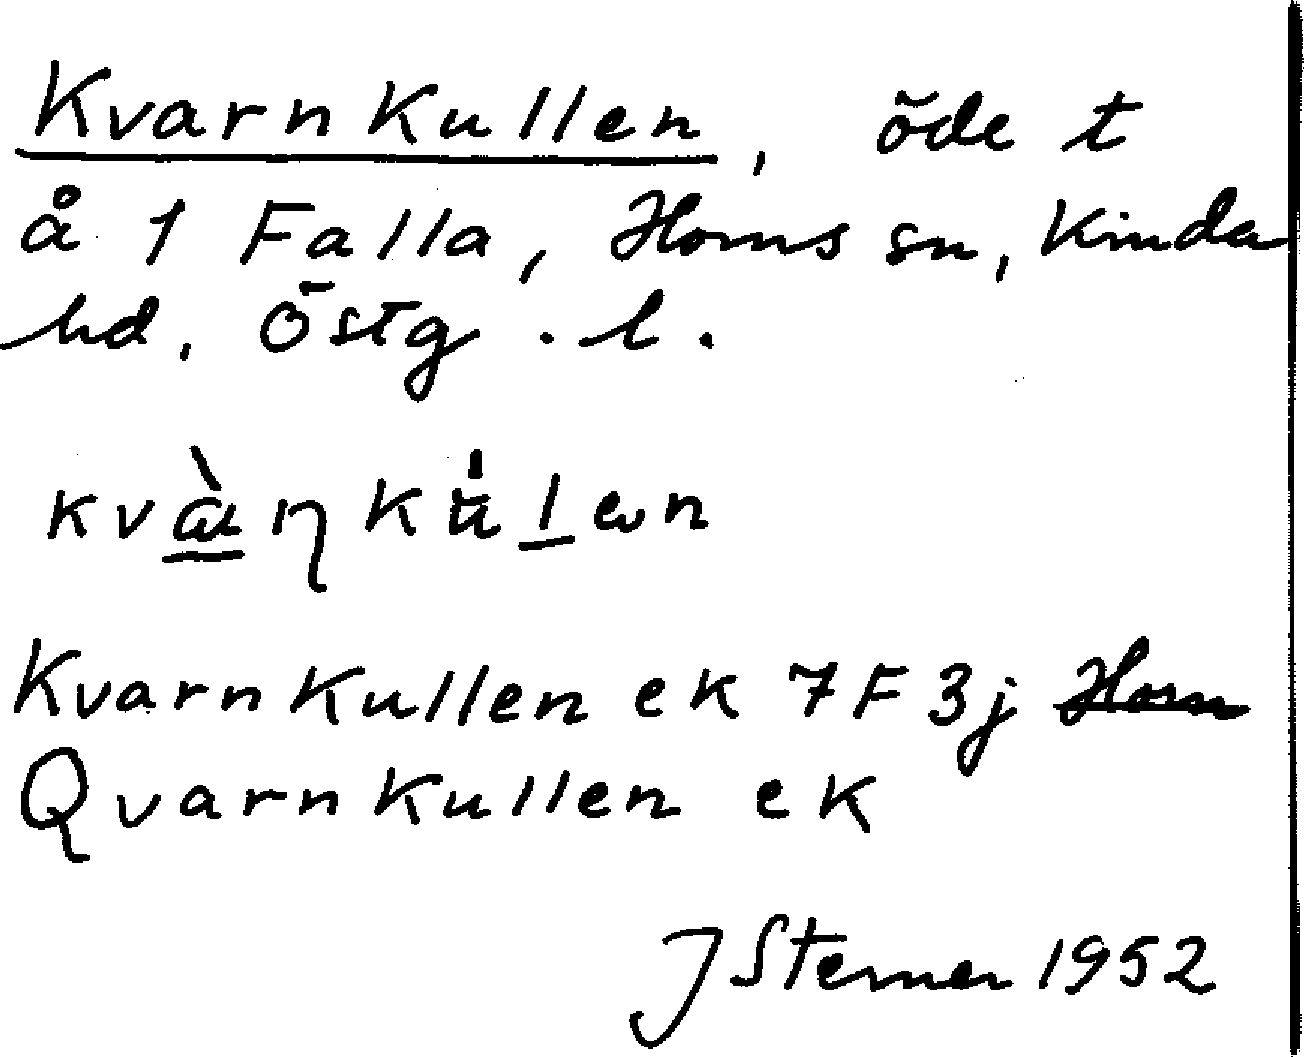 Kvarnkullen, öde t
å 1 Falla, Horns sn, Kinda
hd, Östg. l.
Kvarnkullen ek 7F3j Horn
Qvarnkullen ek
J Sterner 1952